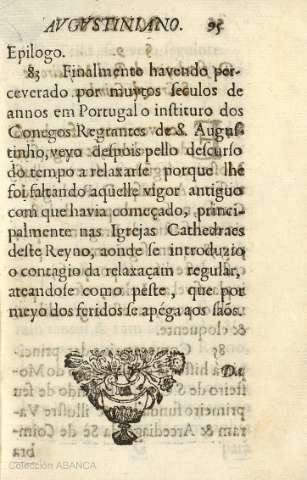 AVGVSTINIANO. 95
Epilogo.
83 Finalmente havendo per-
ceverado por muytos seculos de
annos em Portugal o instituto dos
Conegos Regrantes de S. Augus-
tinho, veyo despois pello descurso
do tempo a relaxarse porque lhe
foi faltando aquelle vigor antiguo
com que havia começado, princi-
palmente nas Igrejas Cathedraes
deste Reyno, aonde se introduzio
o contagio da relaxaçam regular,
ateandose como peste, que por
meyo dos feridos se apéga aos saõs.
Da
Colección ABANCA